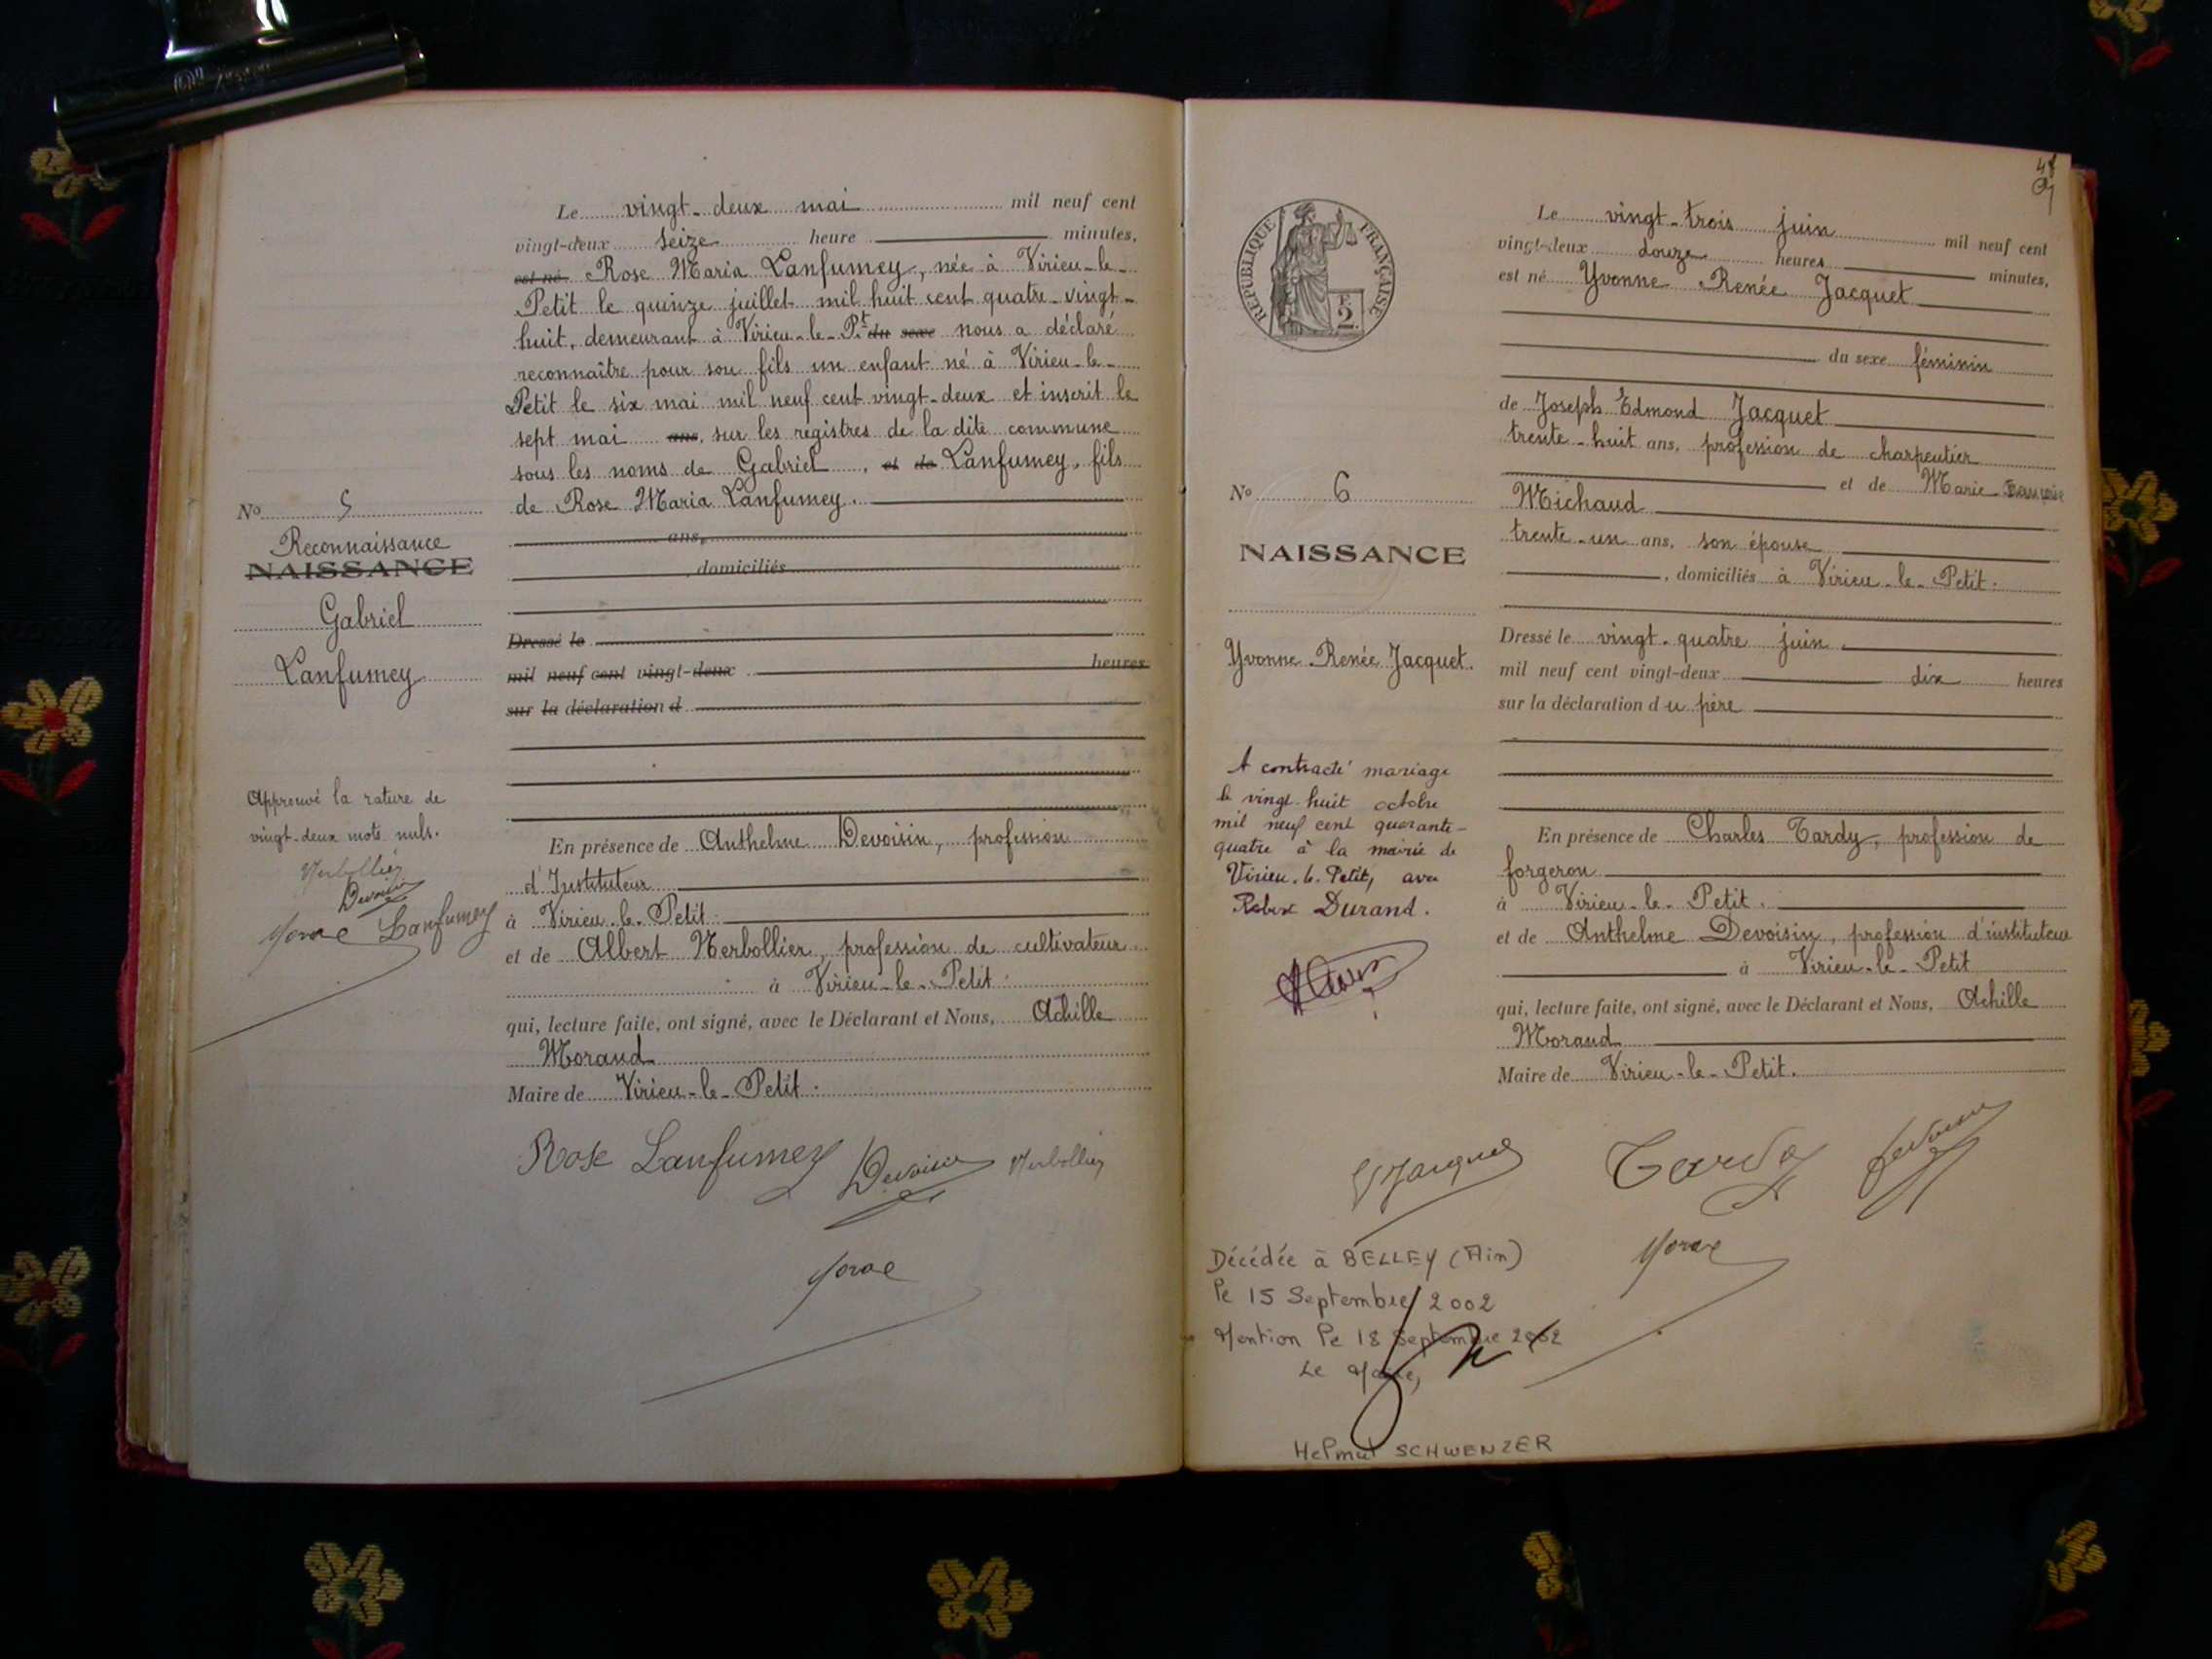 Le vingt-deux mai mil neuf cent
vingt-deux seize heure minutes,
est né Rose Maria Lanfumey, née à Virieu-le-
Petit le quinze juillet mil huit cent quatre-vingt-
huit, demeurant à Virieu-le-Pt. du sexe nous a déclaré
reconnaître pour son fils un enfant né à Virieu-le-
Petit le six mai mil neuf cent vingt-deux et inscrit le
sept mai ans, sur les registres de la dite commune
sous les noms de Gabriel, et de Lanfumey, fils
de Rose Maria Lanfumey.
ans,
domiciliés
Dressé le
mil neuf cent vingt-deux heures
sur la déclaration d
No 5
Reconnaissance
NAISSANCE
Gabriel
Lanfumey
Approuvé la rature de
vingt-deux mots nuls.
Nerbollier
Devoisin
Lanfumey
En présence de Anthelme Devoisin, profession
d'Instituteur
à Virieu-le-Petit
et de Albert Nerbollier, profession de cultivateur
à Virieu-le-Petit
qui, lecture faite, ont signé, avec le Déclarant et Nous, Achille
Morand
Maire de Virieu-le-Petit.
Rose Lanfumey Devoisin Nerbollier
RÉPUBLIQUE FRANÇAISE
Le vingt-trois juin mil neuf cent
vingt-deux douze heures minutes,
est né Yvonne Renée Jacquet
du sexe féminin
de Joseph Edmond Jacquet
trente-huit ans, profession de charpentier
et de Marie
Michaud
trente-un ans, son épouse
, domiciliés à Virieu-le-Petit.
Dressé le vingt-quatre juin
mil neuf cent vingt-deux dix heures
sur la déclaration du père
No 6
NAISSANCE
Yvonne Renée Jacquet.
A contracté mariage
le vingt-huit octobre
mil neuf cent quarante-
quatre à la mairie de
Virieu-le-Petit, avec
Durand.
En présence de Charles Tardy, profession de
forgeron
à Virieu-le-Petit.
et de Anthelme Devoisin, profession d'instituteur
à Virieu-le-Petit
qui, lecture faite, ont signé, avec le Déclarant et Nous, Achille
Morand
Maire de Virieu-le-Petit.
Jacquet Tardy Devoisin
Décédée à BELLEY (Ain)
le 15 Septembre 2002
Mention le 18 Septembre 2002
Le Maire,
Helmut SCHWENZER